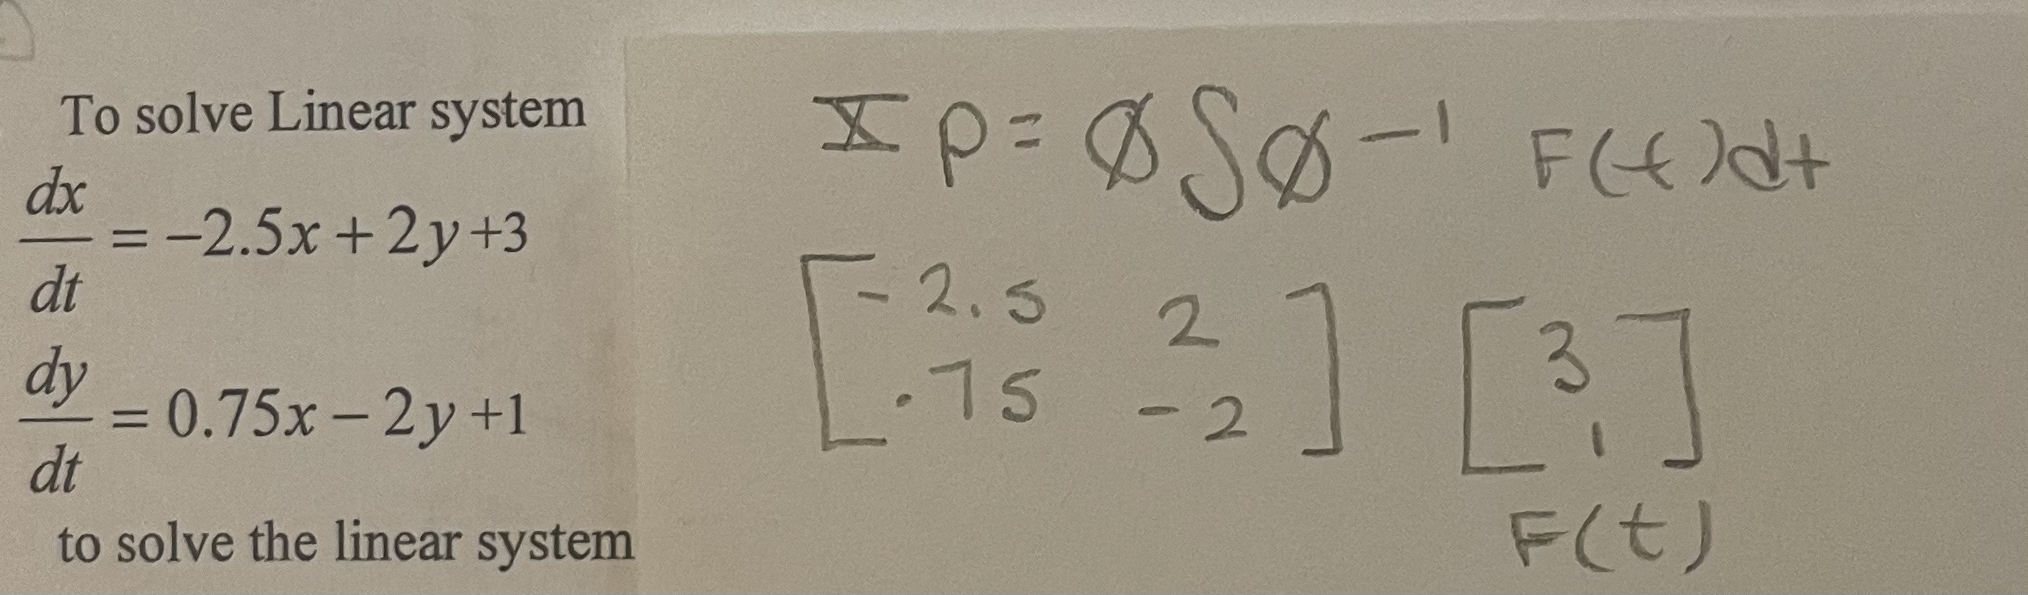 To solve Linear system
dx/dt = −2.5x + 2y +3
dy/dt = 0.75x − 2y +1
to solve the linear system
X p = Ø ∫ Ø⁻¹ F(t)dt
[-2.5 2] [3]
[.75 -2] [1]
F(t)